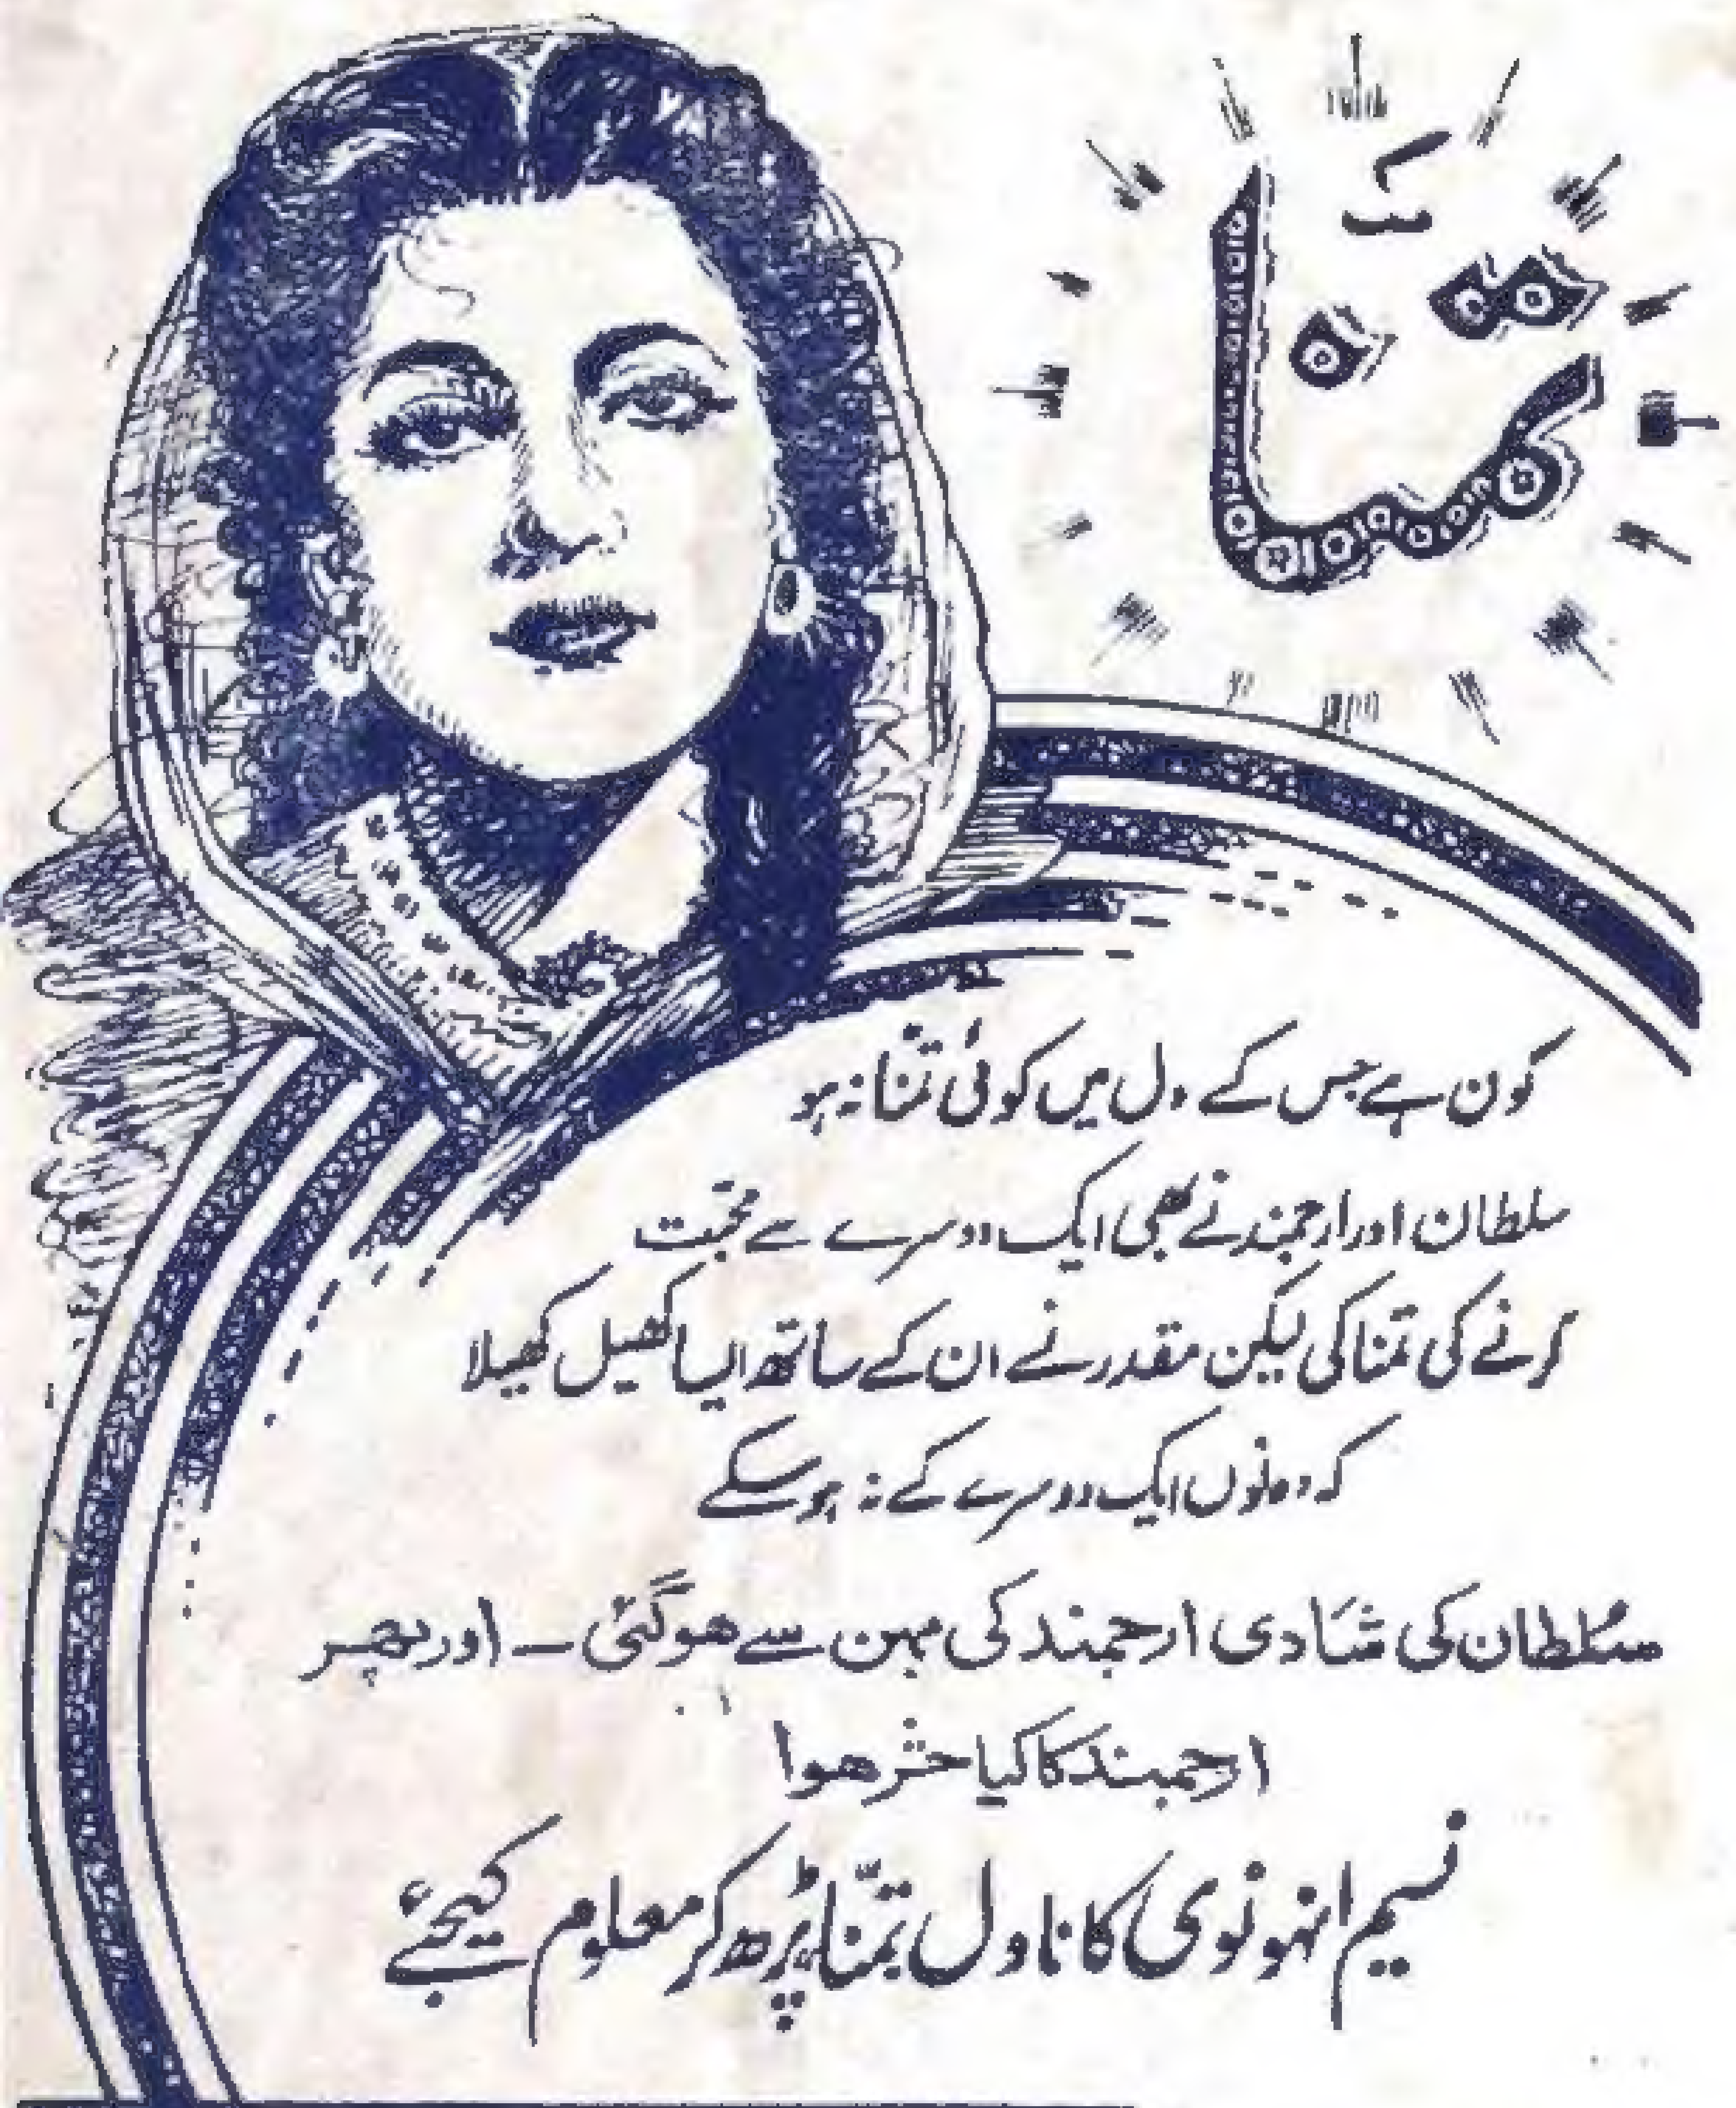 تمنا
کون ہے جس کے دل میں کوئی تمنا نہ ہو
سلطان اور ارجمند نے بھی ایک دوسرے سے محبت
کرنے کی تمنا کی لیکن مقدر نے ان کے ساتھ ایسا کھیل کھیلا
کہ دونوں ایک دوسرے کے نہ ہو سکے
سُلطان کی شَادی ارجمند کی بہن سے ھوگئی ـ اور پھر
ارجمند کا کیا حشر ھوا
نسیم انہونوی کا ناول تمنّا پڑھ کر معلوم کیجئے